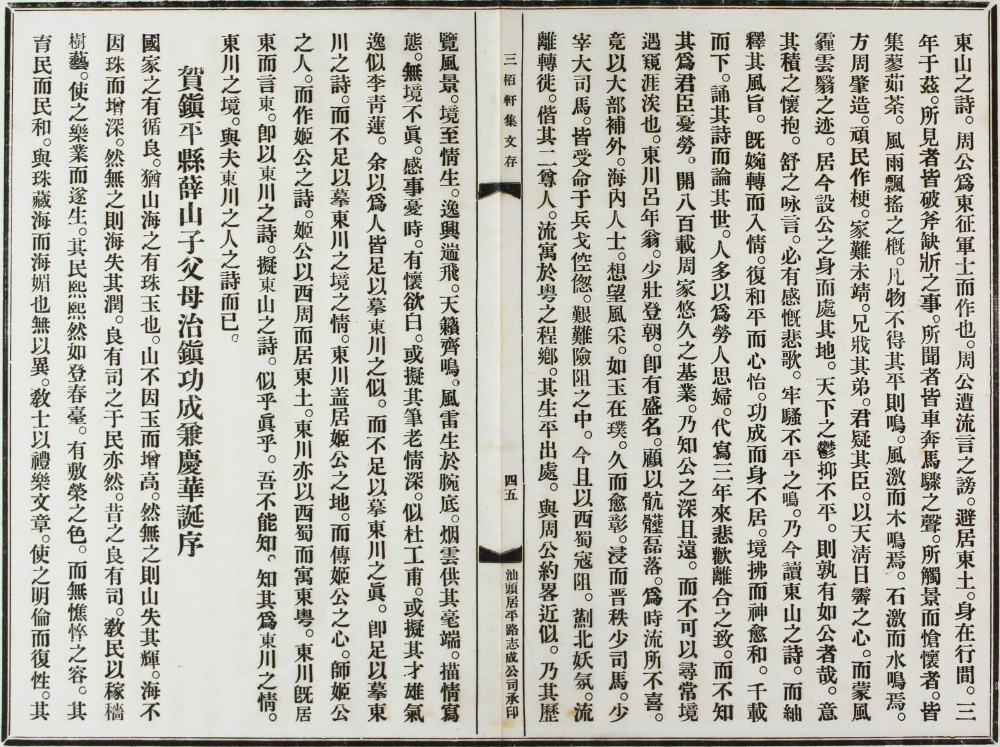 東山之詩。周公爲東征軍士而作也。周公遭流言之謗。避居東土。身在行間。三
年于茲。所見者皆破斧缺斨之事。所聞者皆車奔馬驟之聲。所觸景而愴懷者。皆
集蓼茹茶。風雨飄搖之槪。凡物不得其平則鳴。風激而木鳴焉。石激而水鳴焉。
方周肇造。頑民作梗。家難未靖。兄戕其弟。君疑其臣。以天淸日霽之心。而蒙風
霾雲翳之迹。居今設公之身而處其地。天下之鬱抑不平。則孰有如公者哉。意
其積之懷抱。舒之咏言。必有感慨悲歌。牢騷不平之鳴。乃今讀東山之詩。而紬
釋其風旨。旣婉轉而入情。復和平而心怡。功成而身不居。境拂而神愈和。千載
而下。誦其詩而論其世。人多以爲勞人思婦。代寫三年來悲歡離合之致。而不知
其爲君臣憂勞。開八百載周家悠久之基業。乃知公之深且遠。而不可以尋常境
遇窺涯涘也。東川呂年翁。少壯登朝。卽有盛名。顧以骯髒磊落。爲時流所不喜。
竟以大部補外。海內人士。想望風采。如玉在璞。久而愈彰。浸而晋秩少司馬。少
宰大司馬。皆受命于兵戈倥偬。艱難險阻之中。今且以西蜀寇阻。薊北妖氛。流
離轉徙。偕其二尊人。流寓於粵之程鄕。其生平出處。與周公約畧近似。乃其歷
三栢軒集文存
四五
汕頭居平路志成公司承印
覽風景。境至情生。逸興遄飛。天籟齊鳴。風雷生於腕底。烟雲供其毫端。描情寫
態。無境不眞。感事憂時。有懷欲白。或擬其筆老情深。似杜工甫。或擬其才雄氣
逸似李靑蓮。余以爲人皆足以摹東川之似。而不足以摹東川之眞。卽足以摹東
川之詩。而不足以摹東川之境之情。東川盖居姬公之地。而傳姬公之心。師姬公
之人。而作姬公之詩。姬公以西周而居東土。東川亦以西蜀而寓東粵。東川旣居
東而言東。卽以東川之詩。擬東山之詩。似乎眞乎。吾不能知。知其爲東川之情。
東川之境。與夫東川之人之詩而已。
賀鎭平縣薛山子父母治鎭功成兼慶華誕序
國家之有循良。猶山海之有珠玉也。山不因玉而增高。然無之則山失其輝。海不
因珠而增深。然無之則海失其潤。良有司之于民亦然。昔之良有司。敎民以稼穡
樹藝。使之樂業而遂生。其民熙熙然如登春臺。有敷榮之色。而無憔悴之容。其
育民而民和。與珠藏海而海媚也無以異。敎士以禮樂文章。使之明倫而復性。其